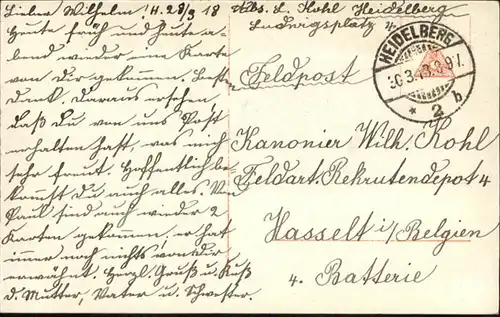 Lieber Wilhelm! H. 28/3 18
Heute früh und heute a-
bend wieder eine Karte
von Dir bekommen. Besten
Dank. Daraus ersehen,
daß Du von uns Post
erhalten hast, was mich
sehr freut. Hoffentlich be-
kommst Du auch alles. Von
Paul sind auch wieder 2
Karten gekommen, er hat
immer noch nichts von dir
erwähnt. Herzl. Gruß u. Kuß
d. Mutter, Vater u. Schwester.
Abs. L. Kohl Heidelberg
Ludwigsplatz
Feldpost
HEIDELBERG
30.3.18.8-9V.
* 2 b
Kanonier Wilh. Kohl
Feldart. Rekrutendepot 4
Hasselt i/Belgien
4. Batterie